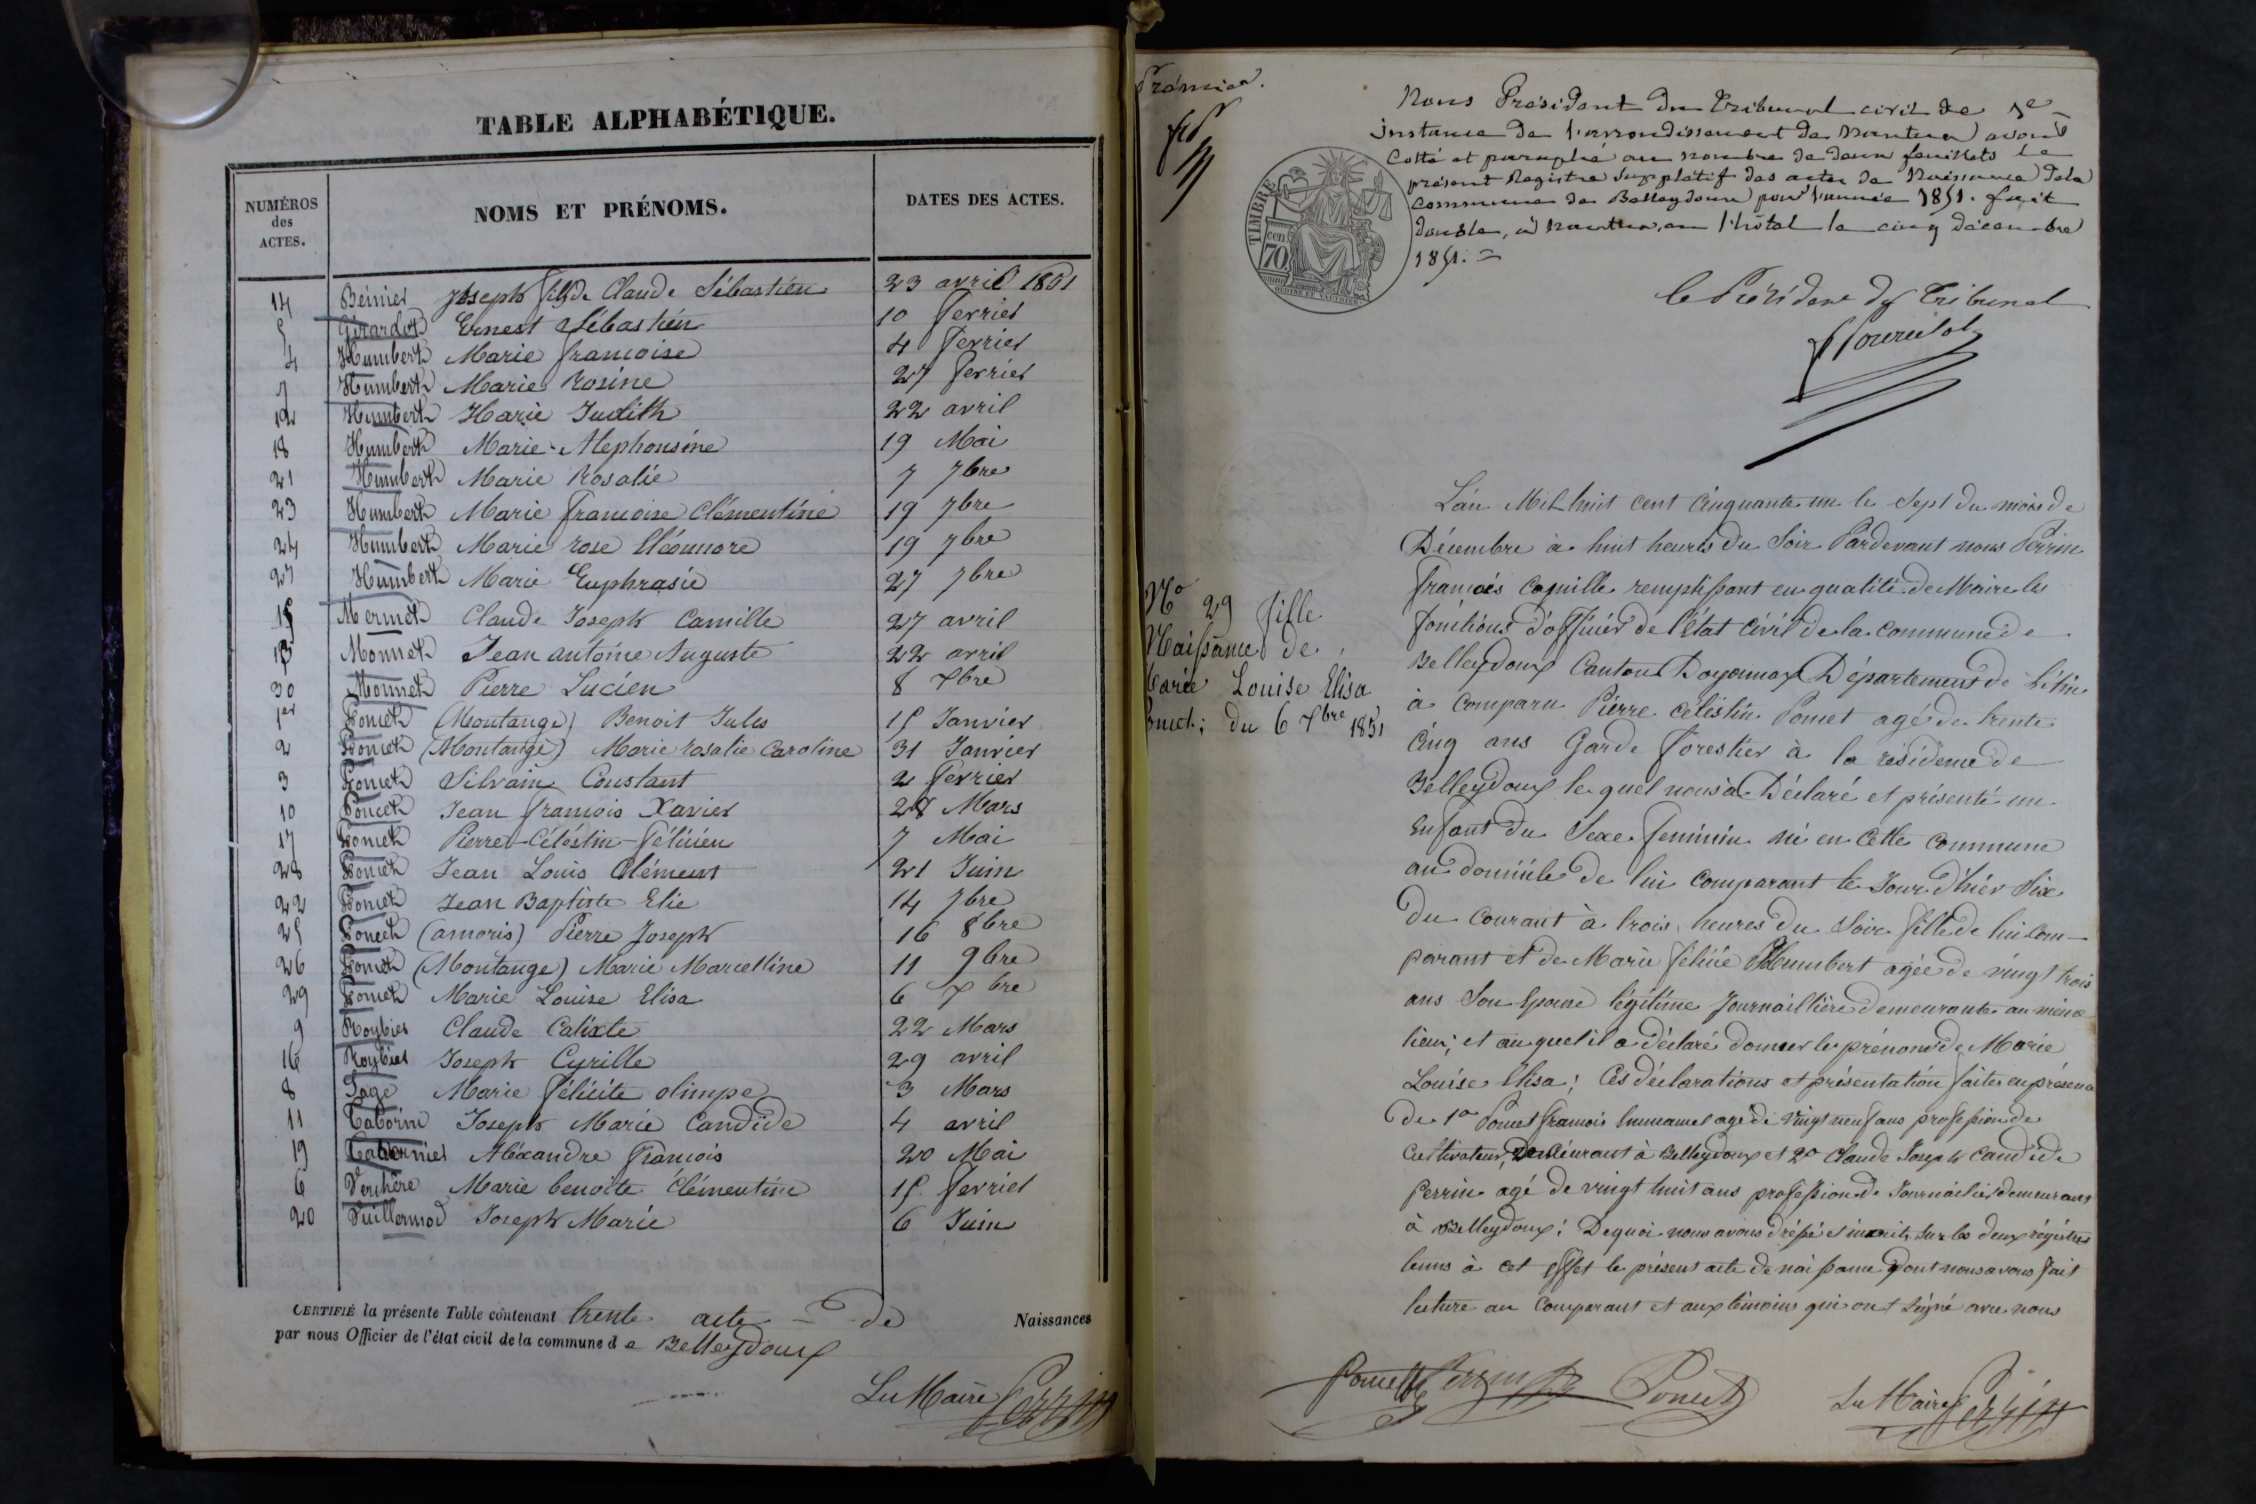 TABLE ALPHABÉTIQUE.
NUMÉROS des ACTES. NOMS ET PRÉNOMS. DATES DES ACTES.
14 Joseph fils de Claude Sébastien 23 avril 1851
5 Girardot Ernest Sébastien 10 fevrier
4 Humbert Marie françoise 4 fevrier
7 Humbert Marie Rosine 27 fevrier
12 Humbert Marie Judith 22 avril
18 Humbert Marie Alephonsine 19 Mai
21 Humbert Marie Rosalie 7 7bre
23 Humbert Marie françoise Clémentine 19 7bre
24 Humbert Marie rose Eléonnore 19 7bre
27 Humbert Marie Euphrasie 27 7bre
15 Mermet Claude Joseph Camille 27 avril
13 Monnet Jean antoine Auguste 22 avril
30 Monnet Pierre Lucien 8 Xbre
1er Poncet (Montange) Benoit Jules 15 Janvier
2 Poncet (Montange) Marie rosalie Caroline 31 Janvier
3 Poncet Silvain Constant 2 fevrier
10 Poncet Jean françois Xavier 28 Mars
17 Poncet Pierre-Célestin-Félicien 7 Mai
28 Poncet Jean Louis Clément 21 Juin
22 Poncet Jean Baptiste Elie 14 7bre
25 Poncet (amoris) Pierre Joseph 16 8bre
26 Poncet (Montange) Marie Marcelline 11 9bre
29 Poncet Marie Louise Elisa 6 Xbre
9 Roybier Claude Calixte 22 Mars
16 Roybier Joseph Cyrille 29 avril
8 Sage Marie félicite olimpe 3 Mars
11 Taborin Joseph Marie Candide 4 avril
19 Alexandre françois 20 Mai
6 Verchère Marie benoite Clémentine 15 fevrier
20 Vuillermod Joseph Marie 6 Juin
CERTIFIÉ la présente Table contenant trente acte de Naissances
par nous Officier de l'état civil de la commune de Belleydoux
Le Maire Perrin
Premier.
Nous Président du Tribunal civil de 1e
instance de l'arrondissement de Nantua avons
Cotté et paraphé au nombre de deux feuillets le
présent Registre supplétif des actes de Naissance de la
commune de Belleydoux pour l'année 1851. fait
double, à Nantua, en l'hôtel le cinq décembre
1851.
TIMBRE
cen
70
le Président du Tribunal
No 29 fille
Naissance de
Marie Louise Elisa
Poncet; du 6 Xbre 1851
L'an Mil huit cent Cinquante un le Sept du mois de
Décembre à huit heures du Soir Pardevant nous Perrin
françois Camille remplissant en qualité de Maire les
fonctions d'officier de l'état Civil de la commune de
Belleydoux Canton D'oyonnax Département de l'Ain
à comparu Pierre célestin Poncet agé de trente
Cinq ans Garde forestier à la résidence de
Belleydoux le quel nous à Déclaré et présenté un
Enfant du Sexe feminin né en Cette commune
au domicile de lui comparant le Jour d'hier Six
du Courant à trois heures du Soir fille de lui Com-
parant et de Marie félicie Humbert agée de vingt trois
ans Son Epouse légitime Journaillière demeurante au même
lieu; et au quel il a déclaré donner les prénoms de Marie
Louise Elisa; Ces déclarations et présentation faites en présence
de 1o Poncet françois Emmanuel agé de vingt neuf ans profession de
Cultivateur, Demeurant à Belleydoux et 2o Claude Joseph Candide
Perrin agé de vingt huit ans profession de Journailier demeurant
à Belleydoux; De quoi nous avons dréssé et inscrit sur les deux régistres
tenus à cet effet le présent acte de naissance dont nous avons fait
lecture au Comparant et aux témoins qui ont signé avec nous
Poncet Perrin Poncet Le Maire Perrin